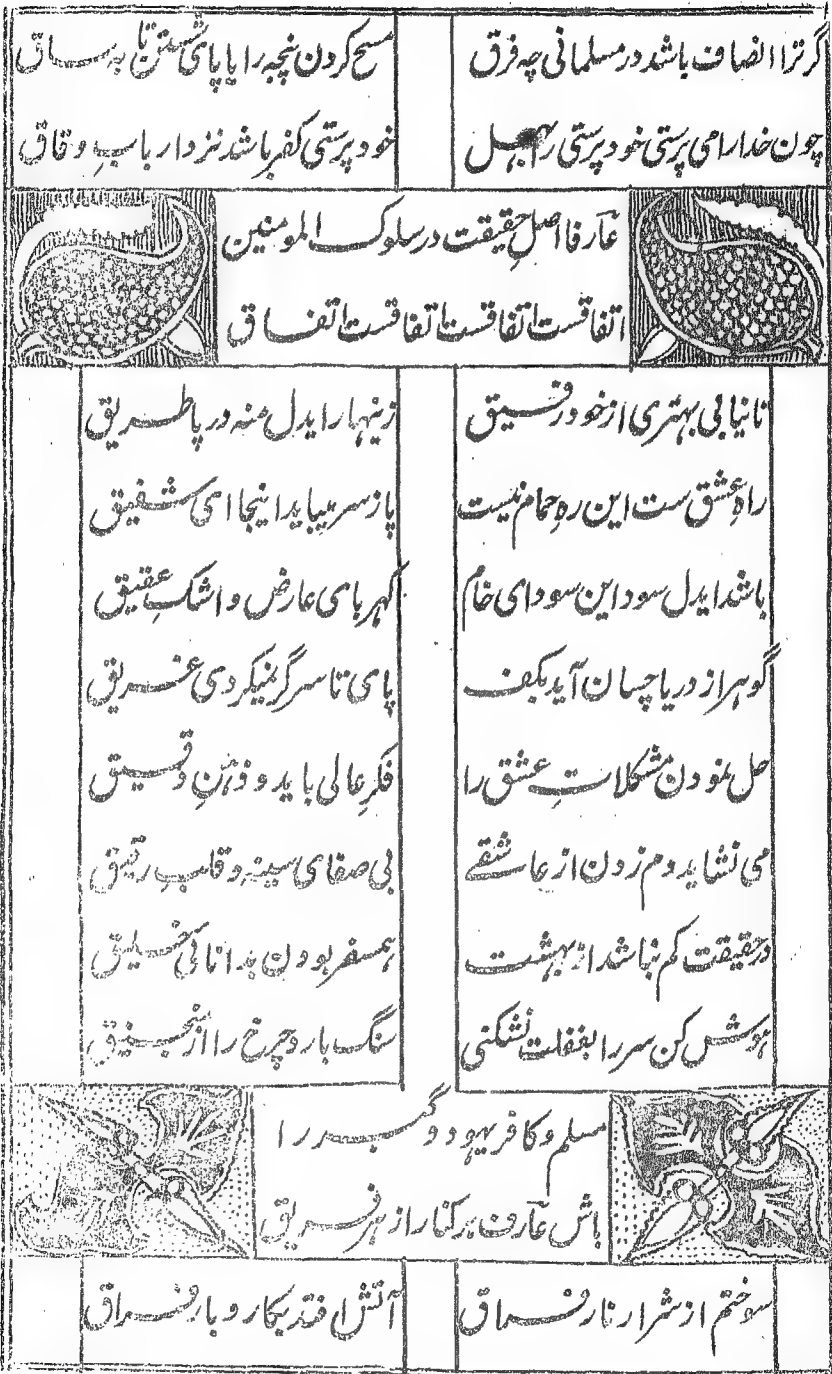 گر ترا انصاف باشد در مسلمانی چه فرق
مسح کردن پنجه را یا پای شستن تا به ساق
چون خدا را می پرستی خود پرستی را بهل
خود پرستی کفر باشد نزد ارباب وفاق
عارفا اصلِ حقیقت در سلوک المومنین
اتفاقست اتفاقست اتفاقست اتفاق
تا نیابی بهتری از خود رفیق
زینهار ایدل منه در پا طریق
راهِ عشق ست این رهِ حمام نیست
پا ز سر میباید اینجا ای شفیق
باشد ایدل سود این سودای خام
کهربای عارض و اشکِ عقیق
گوهر از دریا چسان آید بکف
پای تا سر گر نمیگردی غریق
حل نمودن مشکلاتِ عشق را
فکرِ عالی باید و ذهنِ دقیق
می نشاید دم زدن از عاشقے
بی صفای سینه و قلبِ رقیق
در حقیقت کم نباشد از بهشت
همسفر بودن بدانائی خلیق
هوش کن سر را بغفلت نشکنی
سنگ بارد چرخ را از منجنیق
مسلم و کافر یهود و گبر را
باش عارف برکنار از هر فریق
سوختم از شرار نار فراق
آتش افتد بکار و بار فراق